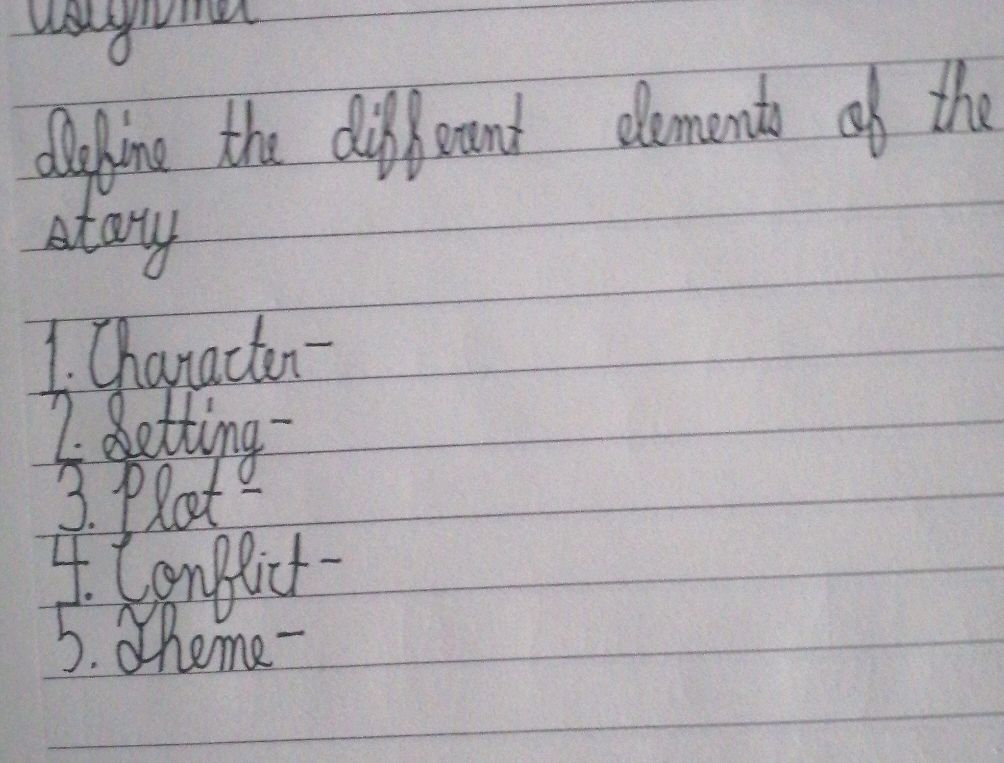 Define the different elements of the
story
1. Character-
2. Setting-
3. Plot-
4. Conflict-
5. Theme-